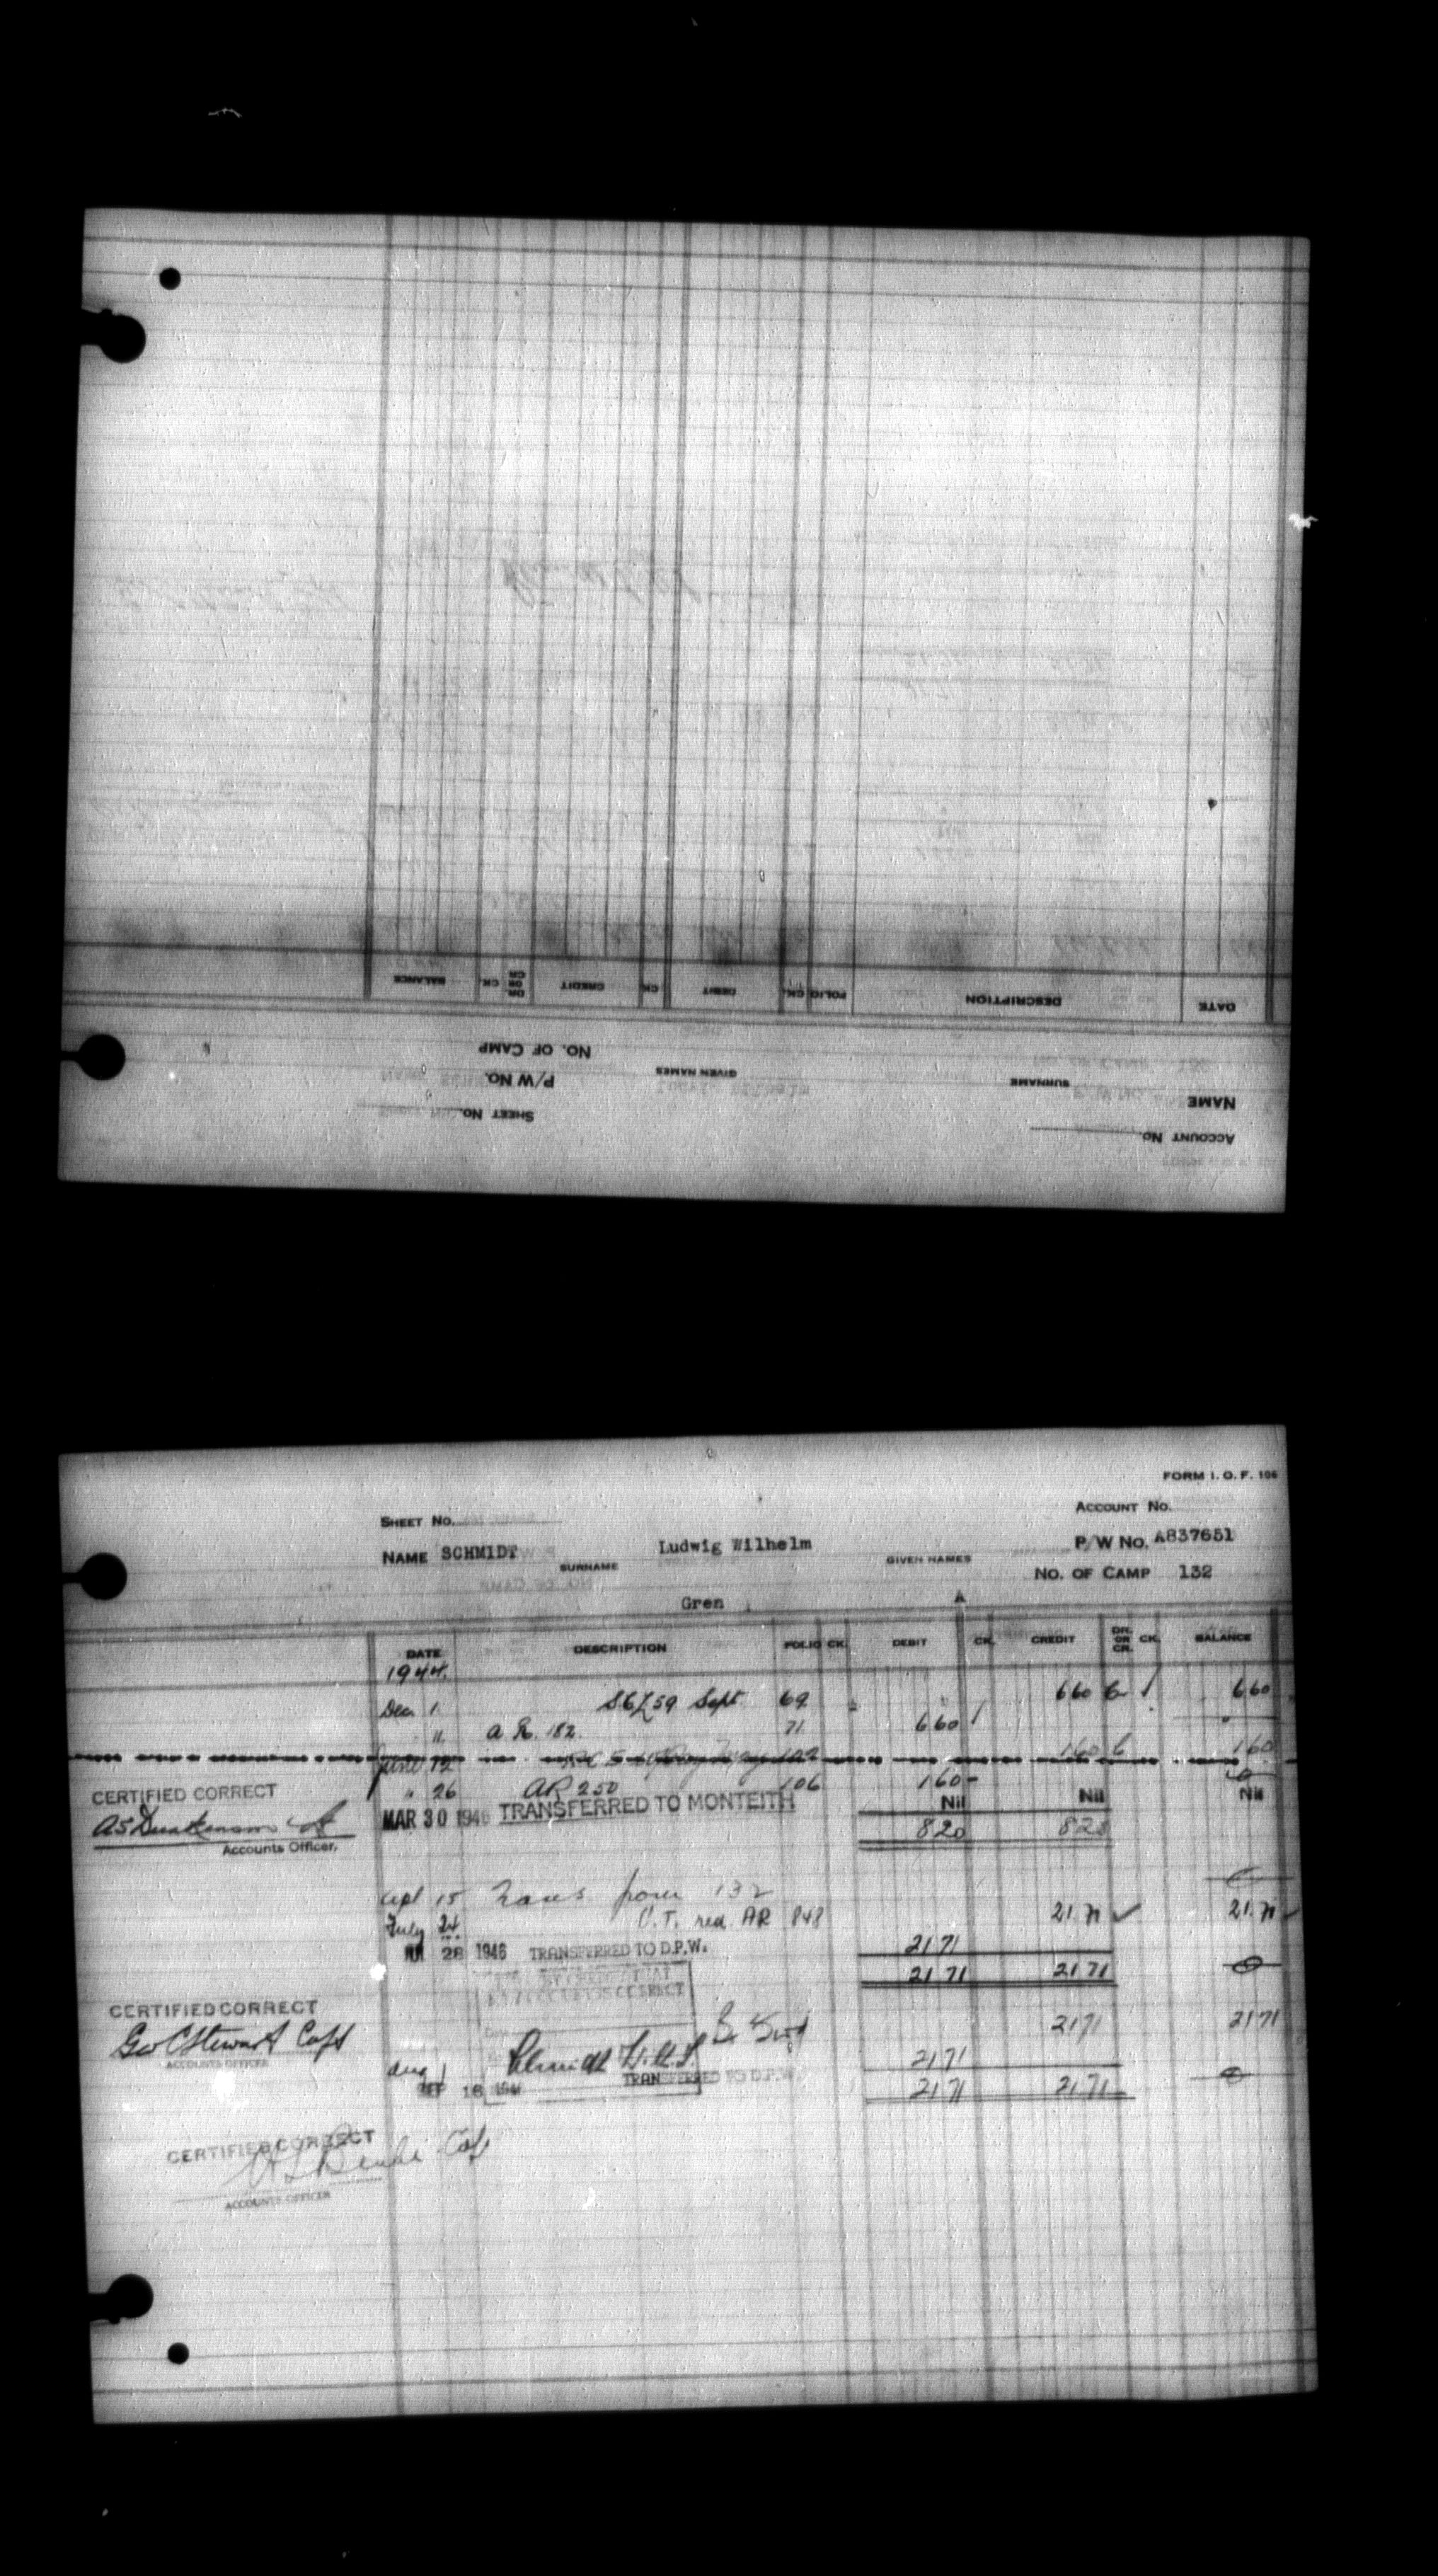 BALANCE CK. DR. OR CR. CREDIT CK. DEBIT CK. FOLIO DESCRIPTION DATE
NO. OF CAMP
P/W NO. GIVEN NAMES SURNAME
NAME
SHEET NO.
ACCOUNT NO.
FORM I. O. F. 106
SHEET NO. ACCOUNT NO.
NAME SCHMIDT Ludwig Wilhelm P/W NO. A837651
SURNAME GIVEN NAMES
NO. OF CAMP 132
Gren A
DATE DESCRIPTION FOLIO CK. DEBIT CK. CREDIT DR. OR CR. CK. BALANCE
1944.
Dec 1 Sept 69 660 660
" A.R. 182 71 660
June 12 102 160 160
CERTIFIED CORRECT " 26 AR 250 106 160-
Nil Nil Nil
MAR 30 1946 TRANSFERRED TO MONTEITH
820 820
Accounts Officer.
Apl 15 Trans from 132
July 24 C.T. red. AR 848 21.71 21.71
JUL 28 1946 TRANSFERRED TO D.P.W. 2171
2171 2171
CERTIFIED CORRECT
Geo C Stewart Capt 2171 2171
ACCOUNTS OFFICER
Aug 1 Schmidt 2171
SEP 18 TRANSFERRED TO D.P.W. 2171 2171
CERTIFIED CORRECT
ACCOUNTS OFFICER